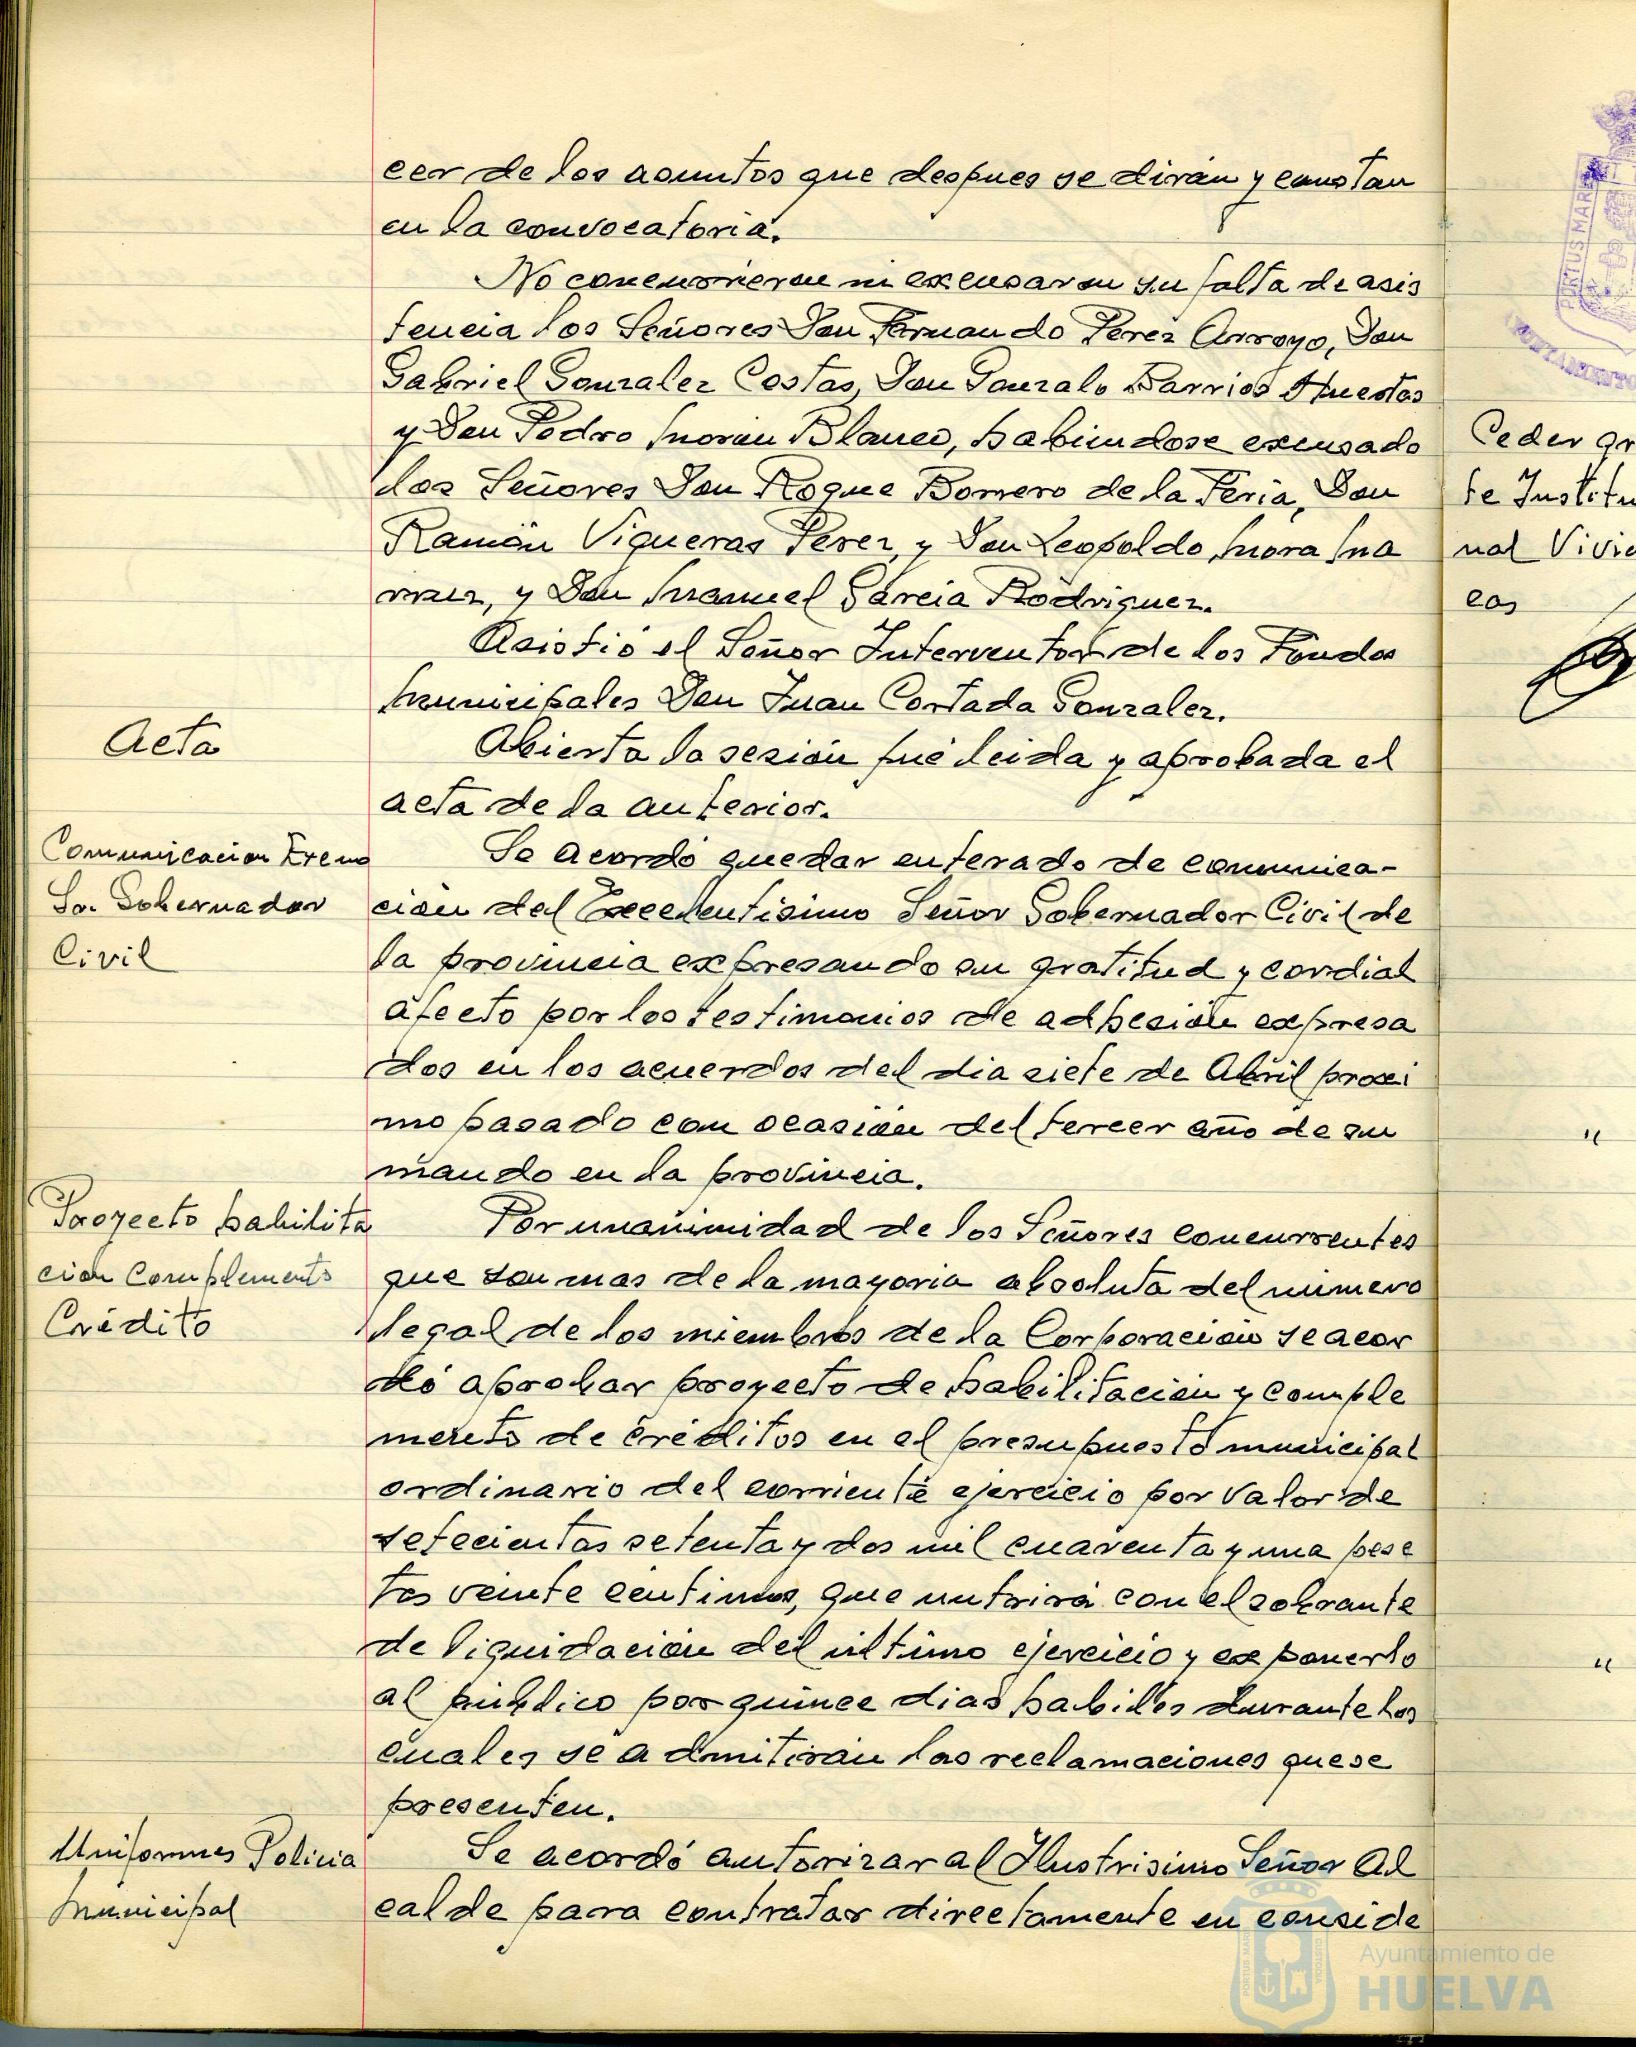 cer de los asuntos que despues se dirán y constan
en la convocatoria.
No concurrieron ni excusaron su falta de asis
tencia los Señores Don Fernando Perez Arroyo, Don
Gabriel Gonzalez Costas, Don Gonzalo Barrios Huestas
y Don Pedro Moron Blanco, habiendose excusado
los Señores Don Roque Borrero de la Feria, Don
Ramón Vigueras Perez, y Don Leopoldo Mora Ma
rruz, y Don Manuel Garcia Rodriguez.
Asistió el Señor Interventor de los Fondos
Municipales Don Juan Cortada Gonzalez.
Acta
Abierta la sesión fué leida y aprobada el
acta de la anterior.
Comunicacion Excmo
Sr. Gobernador
Civil
Se acordó quedar enterado de comunica-
ción del Excelentisimo Señor Gobernador Civil de
la provincia expresando su gratitud y cordial
afecto por los testimonios de adhesión expresa
dos en los acuerdos del dia siete de Abril proxi
mo pasado con ocasión del tercer año de su
mando en la provincia.
Proyecto habilita
cion complemento
Crédito
Por unanimidad de los Señores concurrentes
que son mas de la mayoria absoluta del número
legal de los miembros de la Corporación se acor
dó aprobar proyecto de habilitación y comple
mento de créditos en el presupuesto municipal
ordinario del corriente ejercicio por valor de
setecientas setenta y dos mil cuarenta y una pese
tas veinte centimos, que nutrirá con el sobrante
de liquidación del último ejercicio y exponerlo
al público por quince dias habiles durante los
cuales se admitirán las reclamaciones que se
presenten.
Uniformes Policia
Municipal
Se acordó autorizar al Ilustrisimo Señor Al
calde para contratar directamente en conside
Ceder gr
te Institu
nal Vivie
cas
"
"
PORTUS MARIS
AYUNTAMIENTO
Ayuntamiento de
HUELVA